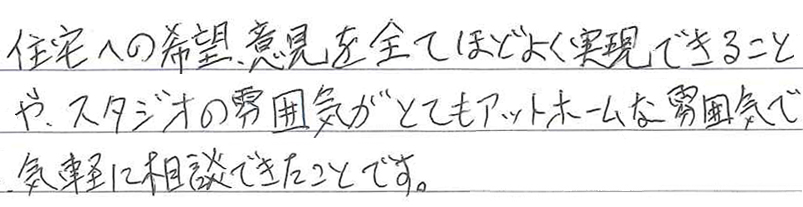 住宅への希望、意見を全てほどよく実現できること
や、スタジオの雰囲気がとてもアットホームな雰囲気で
気軽に相談できたことです。